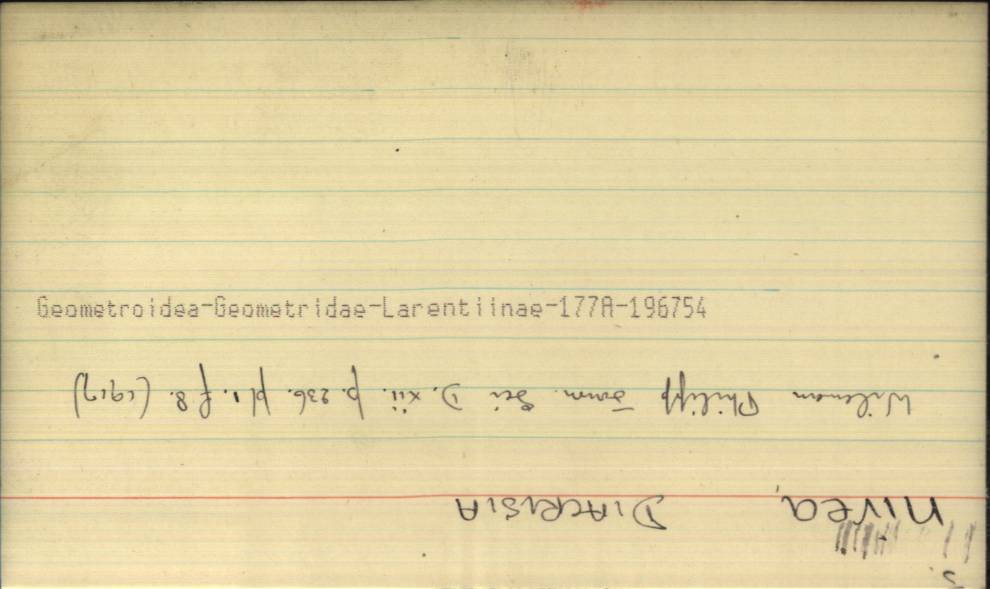 nivea, DIACRISIA
Wileman Philipp Journ. Sci D. xii. p. 236. pl 1. f 8. (1917)
Geometroidea-Geometridae-Larentiinae-177A-196754